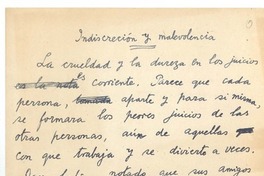 Indiscreción y malevolencia
La crueldad y la dureza en los juicios
es la nota es corriente. Parece que cada
persona, tomada aparte y para si misma,
se formara los peores juicios de las
otras personas, aún de aquellas
con que trabaja y se divierte a veces.
notado que sus amigos